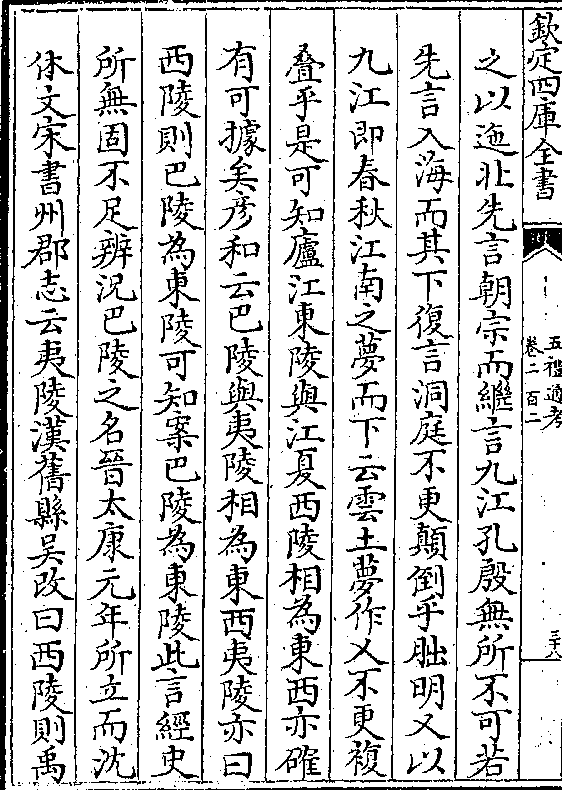 欽定四庫全書
五禮通考
卷二百二
三十八
之以迤北先言朝宗而繼言九江孔殷無所不可若
先言入海而其下復言洞庭不更顛倒乎朏明又以
九江即春秋江南之夢而下云雲土夢作乂不更複
疊乎是可知廬江東陵與江夏西陵相為東西亦確
有可據矣彦和云巴陵與夷陵相為東西夷陵亦曰
西陵則巴陵為東陵可知案巴陵為東陵此言經史
所無固不足辨況巴陵之名晉太康元年所立而沈
休文宋書州郡志云夷陵漢舊縣吳改曰西陵則禹